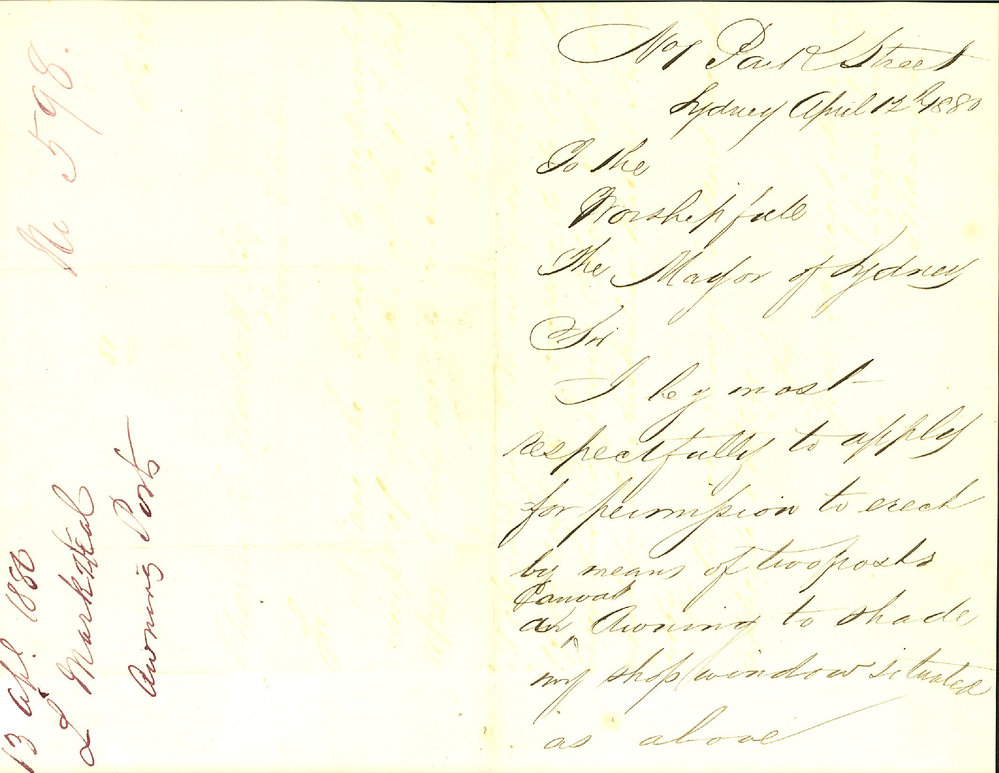 No 598.
13 Apl. 1880
L Mark
Awning Posts
Park Street
Sydney April 12th 1880
To the
Worshipfull
The Mayor of Sydney
Sir
I beg most
respectfully to apply
for permission to erect
by means of two posts
Canvas
an ^ Awning to shade
my shop window situated
as above